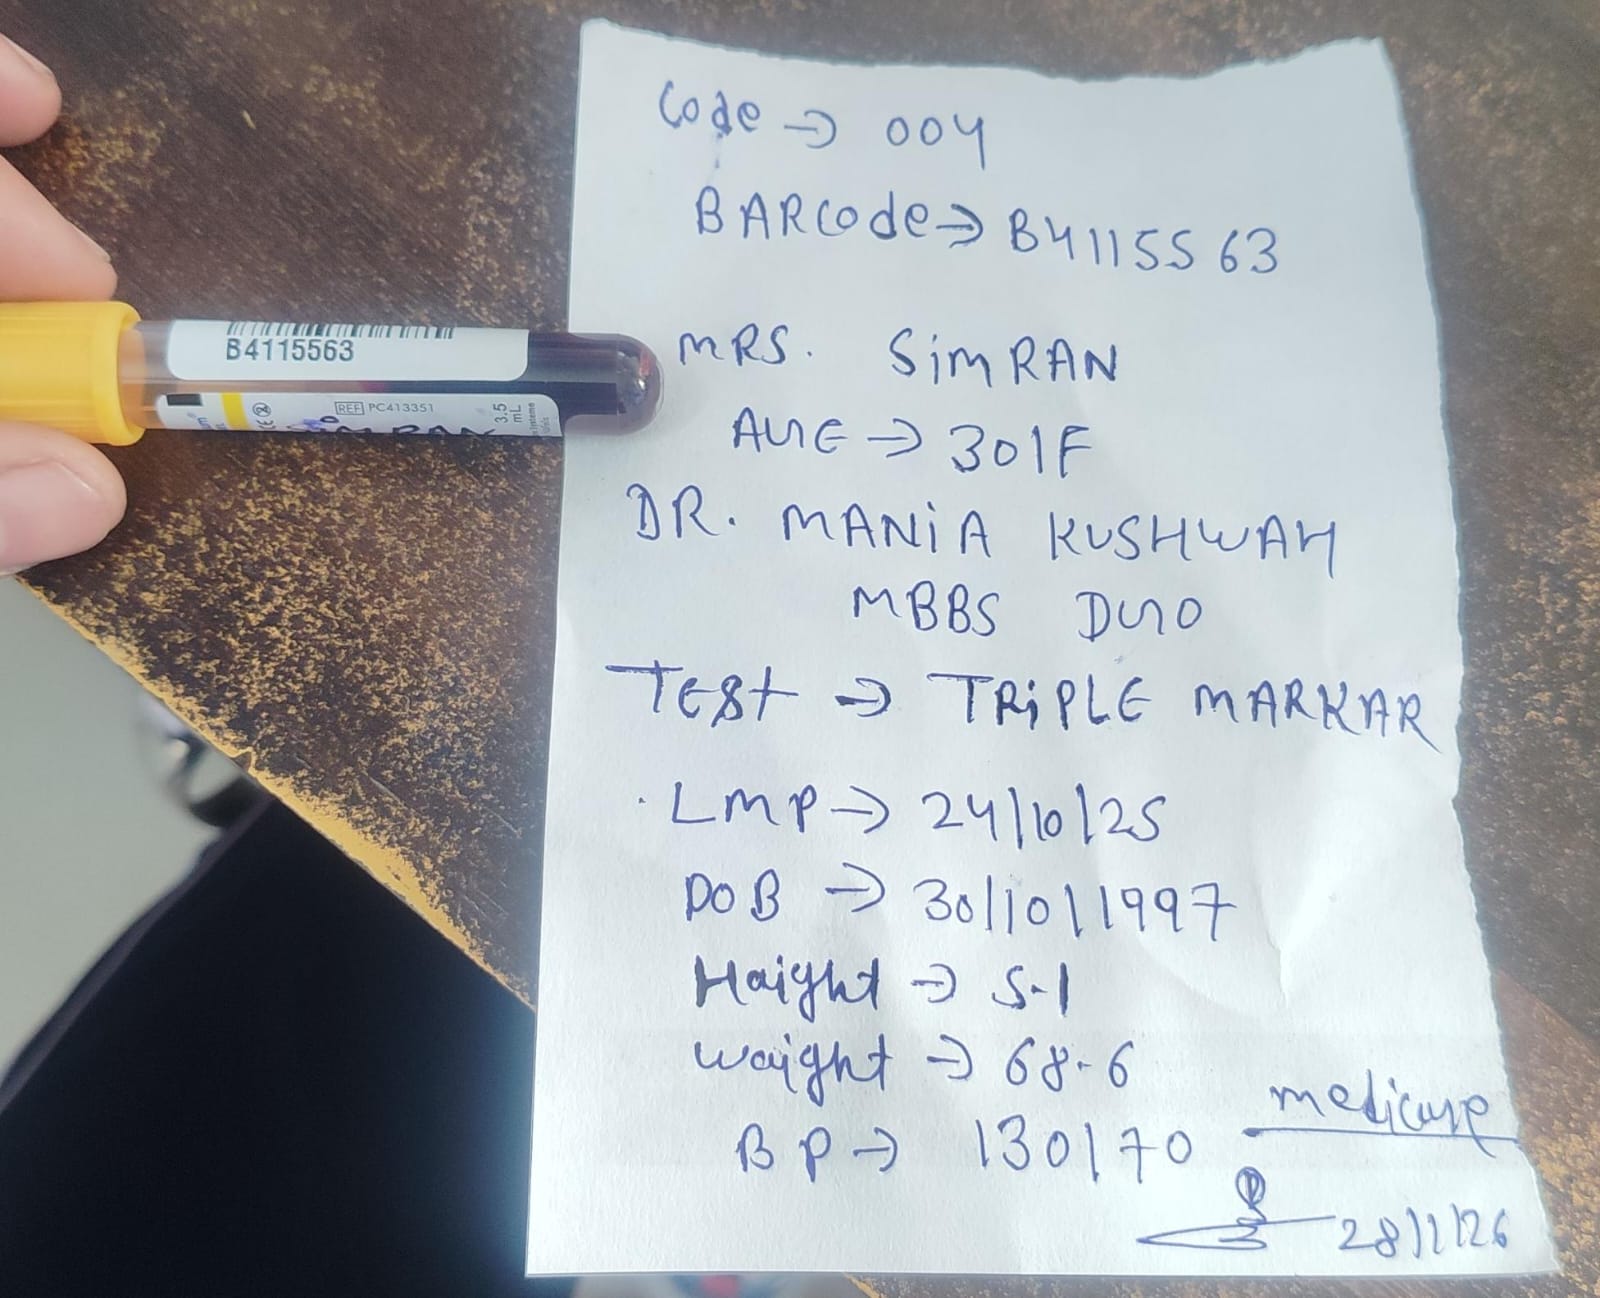 Code → 004
BARCode → B4115563
MRS. SiMRAN
AGE → 30/F
DR. MANiA KUSHWAH
MBBS DGO
TEST → TRiPLE MARKAR
LMP → 24/10/25
DOB → 30/10/1997
Haight → 5-1
Waight → 68-6
BP → 130/70
medicare
28/1/26
B4115563
REF PC413351
3.5
mL
SiMRAN